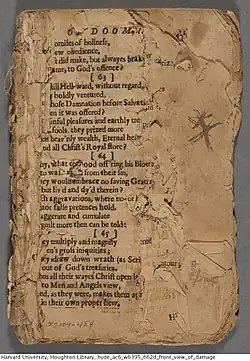 OF DOOM.
omises of holiness,
ew obedience,
t did make, but alwayes brake
ame, to God's offence?
[63]
Hell-ward, without regard,
boldly ventured,
hose Damnation before Salvati
en it was offered?
inful pleasures and earthly tre
fools they prized more
en heav'nly wealth, Eternal hea
nd all Christ's Royal store?
[64]
hy, what good off'ring his Bloo
to wa from their sin,
ey would embrace no saving Grace
but liv'd and dy'd therein?
ch aggravations, where no
nor false pretences hold,
aggerate and cumulate
guilt more then can be told:
[65]
ey multiply and magnify
en's gross iniquities;
ey draw down wrath (as Scri
out of God's treasuries.
hus all their wayes Christ open l
to Men and Angels view,
nd, as they were, makes them ap
in their own proper
Harvard University, Houghton Library, hyde_ac6_w6395_662d_front_view_of_damage